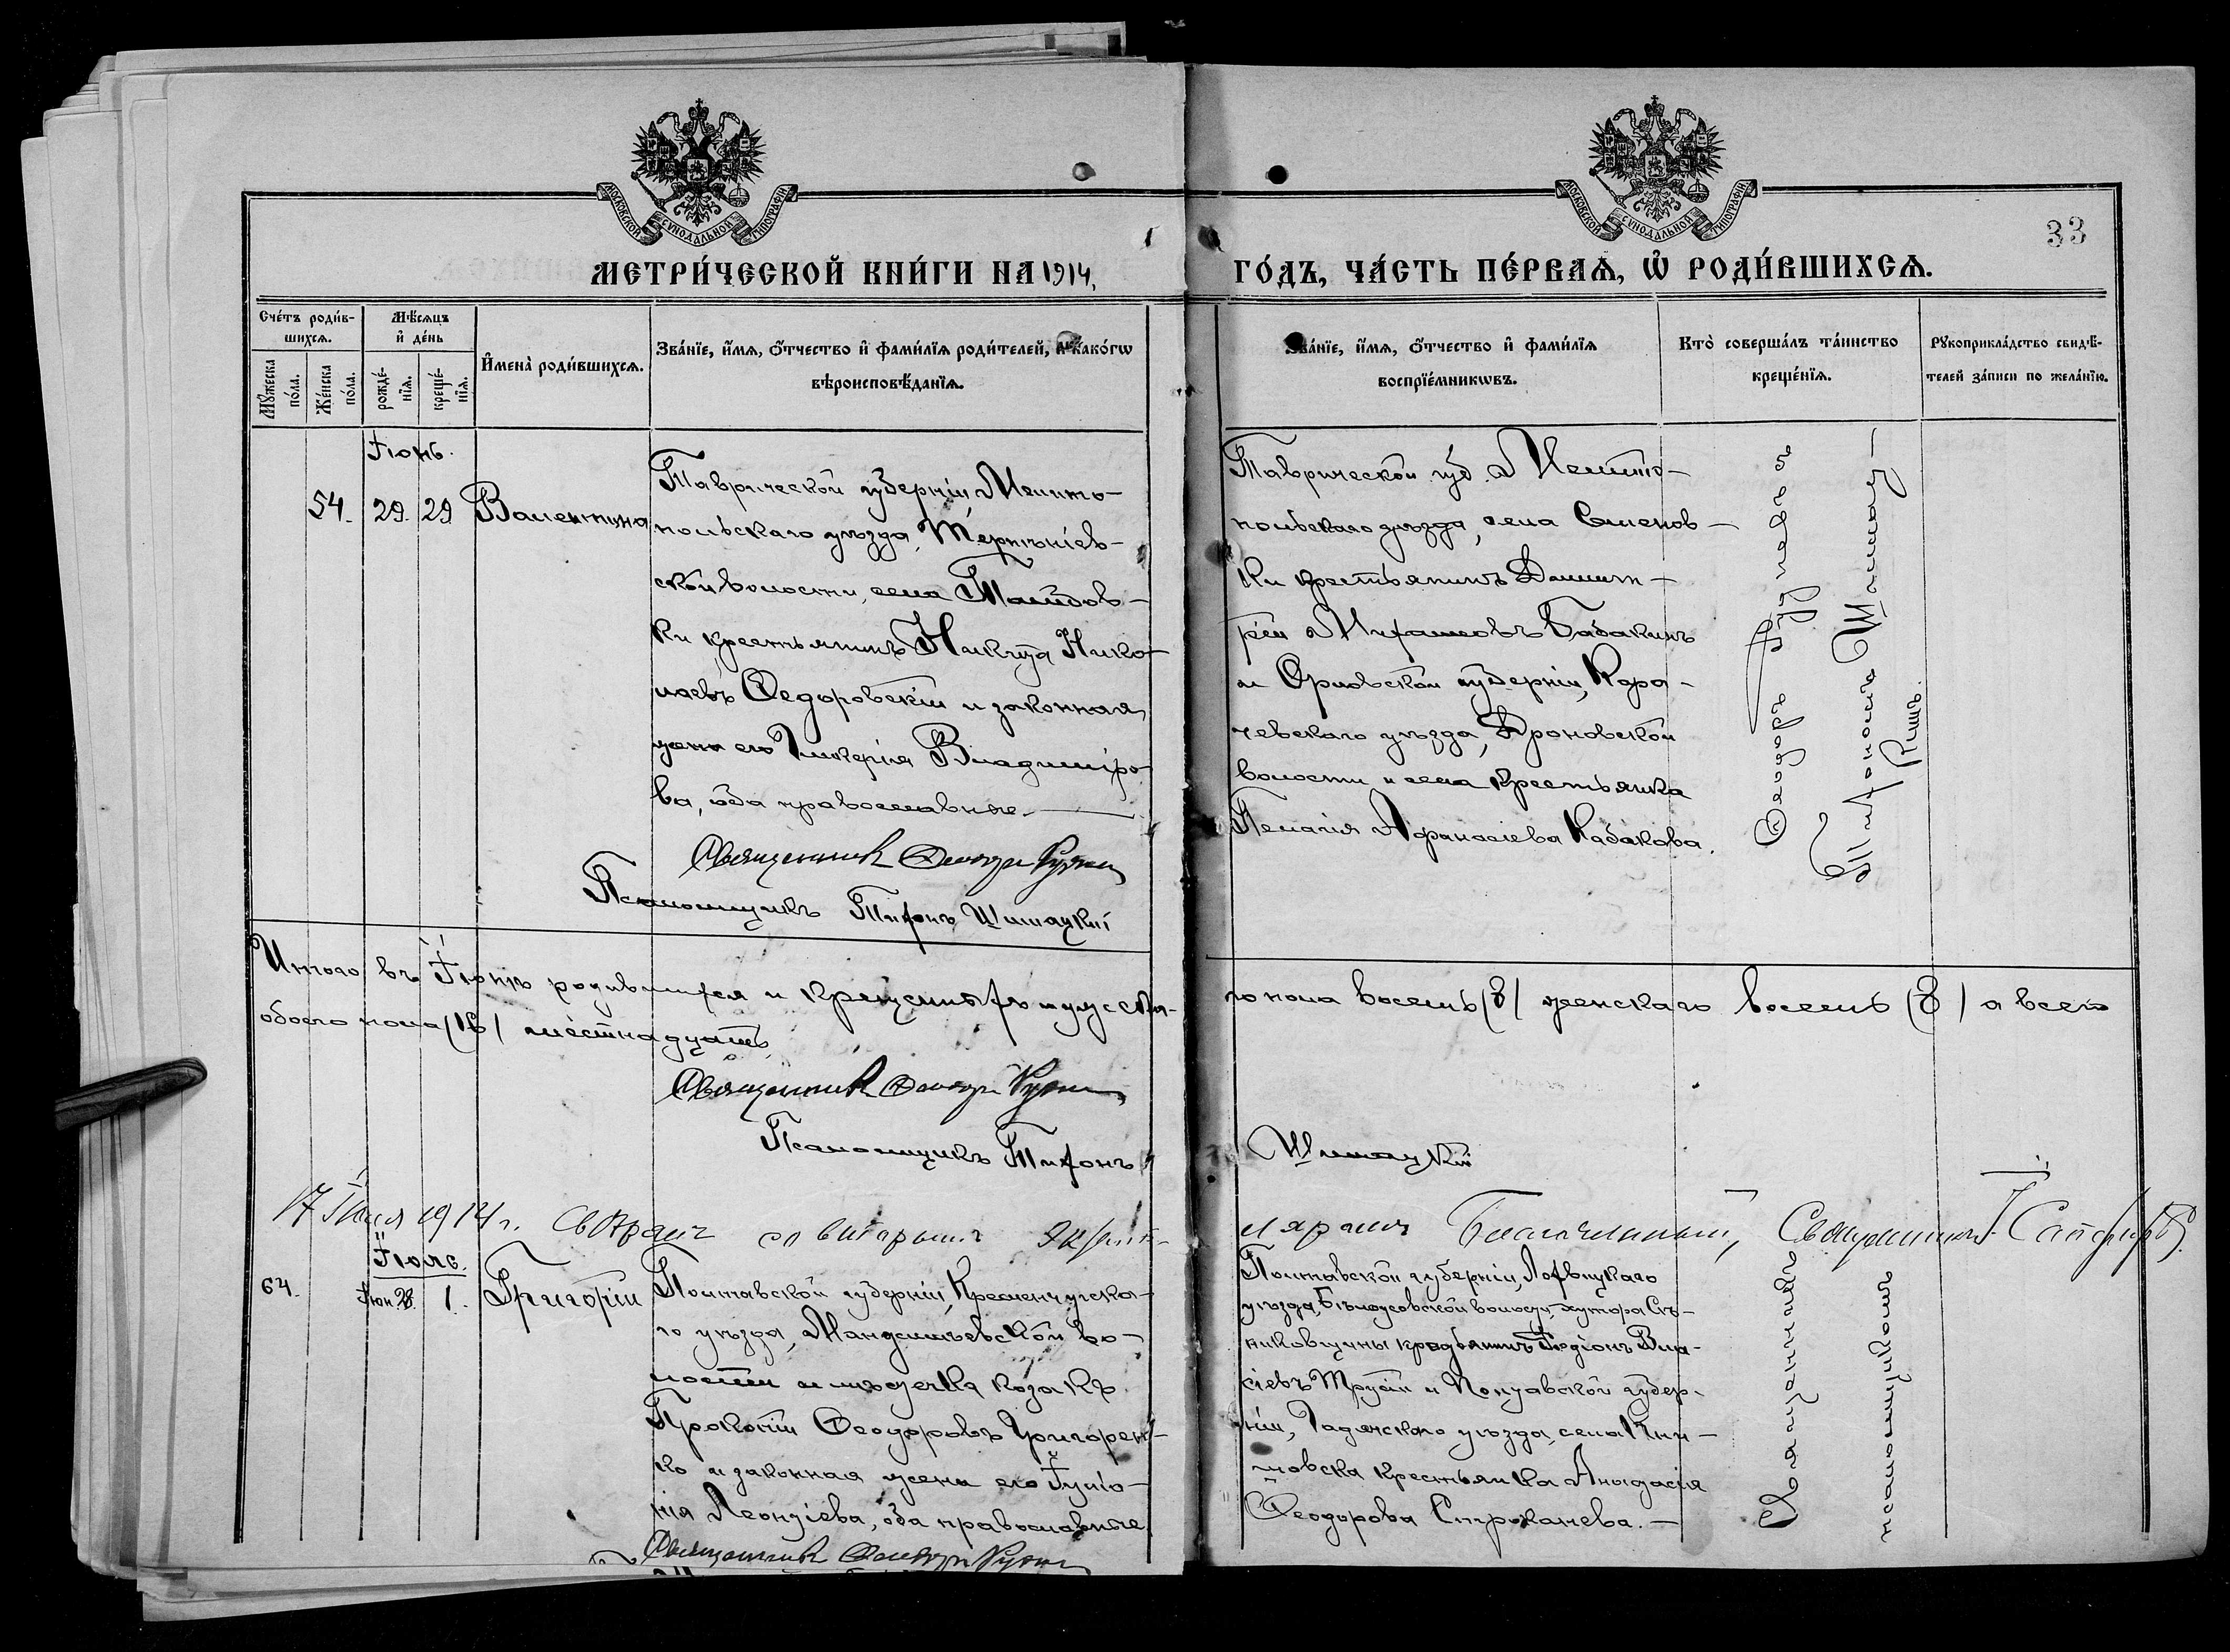 МОСКОВСКОЙ СѴНОДАЛЬНОЙ ТИПОГРАФІИ
МОСКОВСКОЙ СѴНОДАЛЬНОЙ ТИПОГРАФІИ
33
МЕТРИ́ЧЕСКОЙ КНИ́ГИ НА 1914,
ГО́ДЪ, ЧА́СТЬ ПЕ́РВАѦ, Ѡ҆ РОДИ́ВШИХСѦ.
Сче́тъ роди́в-
шихсѧ.
Мꙋ́жеска
по́ла.
Же́нска
по́ла.
Мѣ́сѧцъ
и҆ де́нь
рожде́-
нїѧ.
креще́-
нїѧ.
И҆мена̀ роди́вшихсѧ.
Зва́нїе, и҆́мѧ, ѻ҆́тчество и҆ фами́лїѧ роди́телей, и҆ како́гѡ
вѣроисповѣ́данїѧ.
Зва́нїе, и҆́мѧ, ѻ҆́тчество и҆ фами́лїѧ
воспрїе́мникѡвъ.
Кто̀ соверша́лъ та́инство
креще́нїѧ.
Рꙋкоприкла́дство свидѣ́-
телей за́писи по жела́нїю.
Іюнь.
54. 29. 29 Валентина
Таврической губерніи, Мелито-
польскаго уѣзда,
ской волости, села
ки крестьянинъ Никита Нико-
лаевъ Федоровскій и законная
жена его Гликерія Владиміро-
ва, оба православные.
Священникъ Феодоръ
Псаломщикъ Тихонъ Шимацкій
Таврической губ. Мелито-
польскаго уѣзда, села Семенов-
ки крестьянинъ Димит-
рій Михаиловъ Бабакинъ
и Орловской губерніи, Кара-
чевскаго уѣзда, Дроновской
волости и села крестьянка
Пелагія Афанасіева Кабакова.
Феодоръ съ
Тихономъ Шимац-
кимъ.
Итого въ Іюнѣ родившихся и крещеныхъ мужска-
го пола восемь (8) женскаго восемь (8) а всего
обоего пола (16) шестнадцать
Священникъ Феодоръ
Псаломщикъ Тихонъ
Шимацкій
17 Іюля 1914 г. Свѣрялъ со вторымъ экзем-
пляромъ Благочинный, Священникъ
Іюль.
64. Іюн. 28. 1. Григорій
Полтавской губерніи, Кременчугска-
го уѣзда, Манжелѣевской во-
лости и мѣстечка козакъ
Прокопій Феодоровъ Григорен-
ко и законная жена его Іуліа-
нія Леонтіева, оба православные.
Священникъ Феодоръ
Полтавской губерніи, Лохвицкаго
уѣзда, Бѣлоусовской волости, хутора Сѣ-
никовщины крестьянинъ Иродіонъ Вла-
сіевъ и Полтавской губер-
ніи, Гадячскаго уѣзда, села
крестьянка Анастасія
Феодорова Строканева.
псаломщикомъ